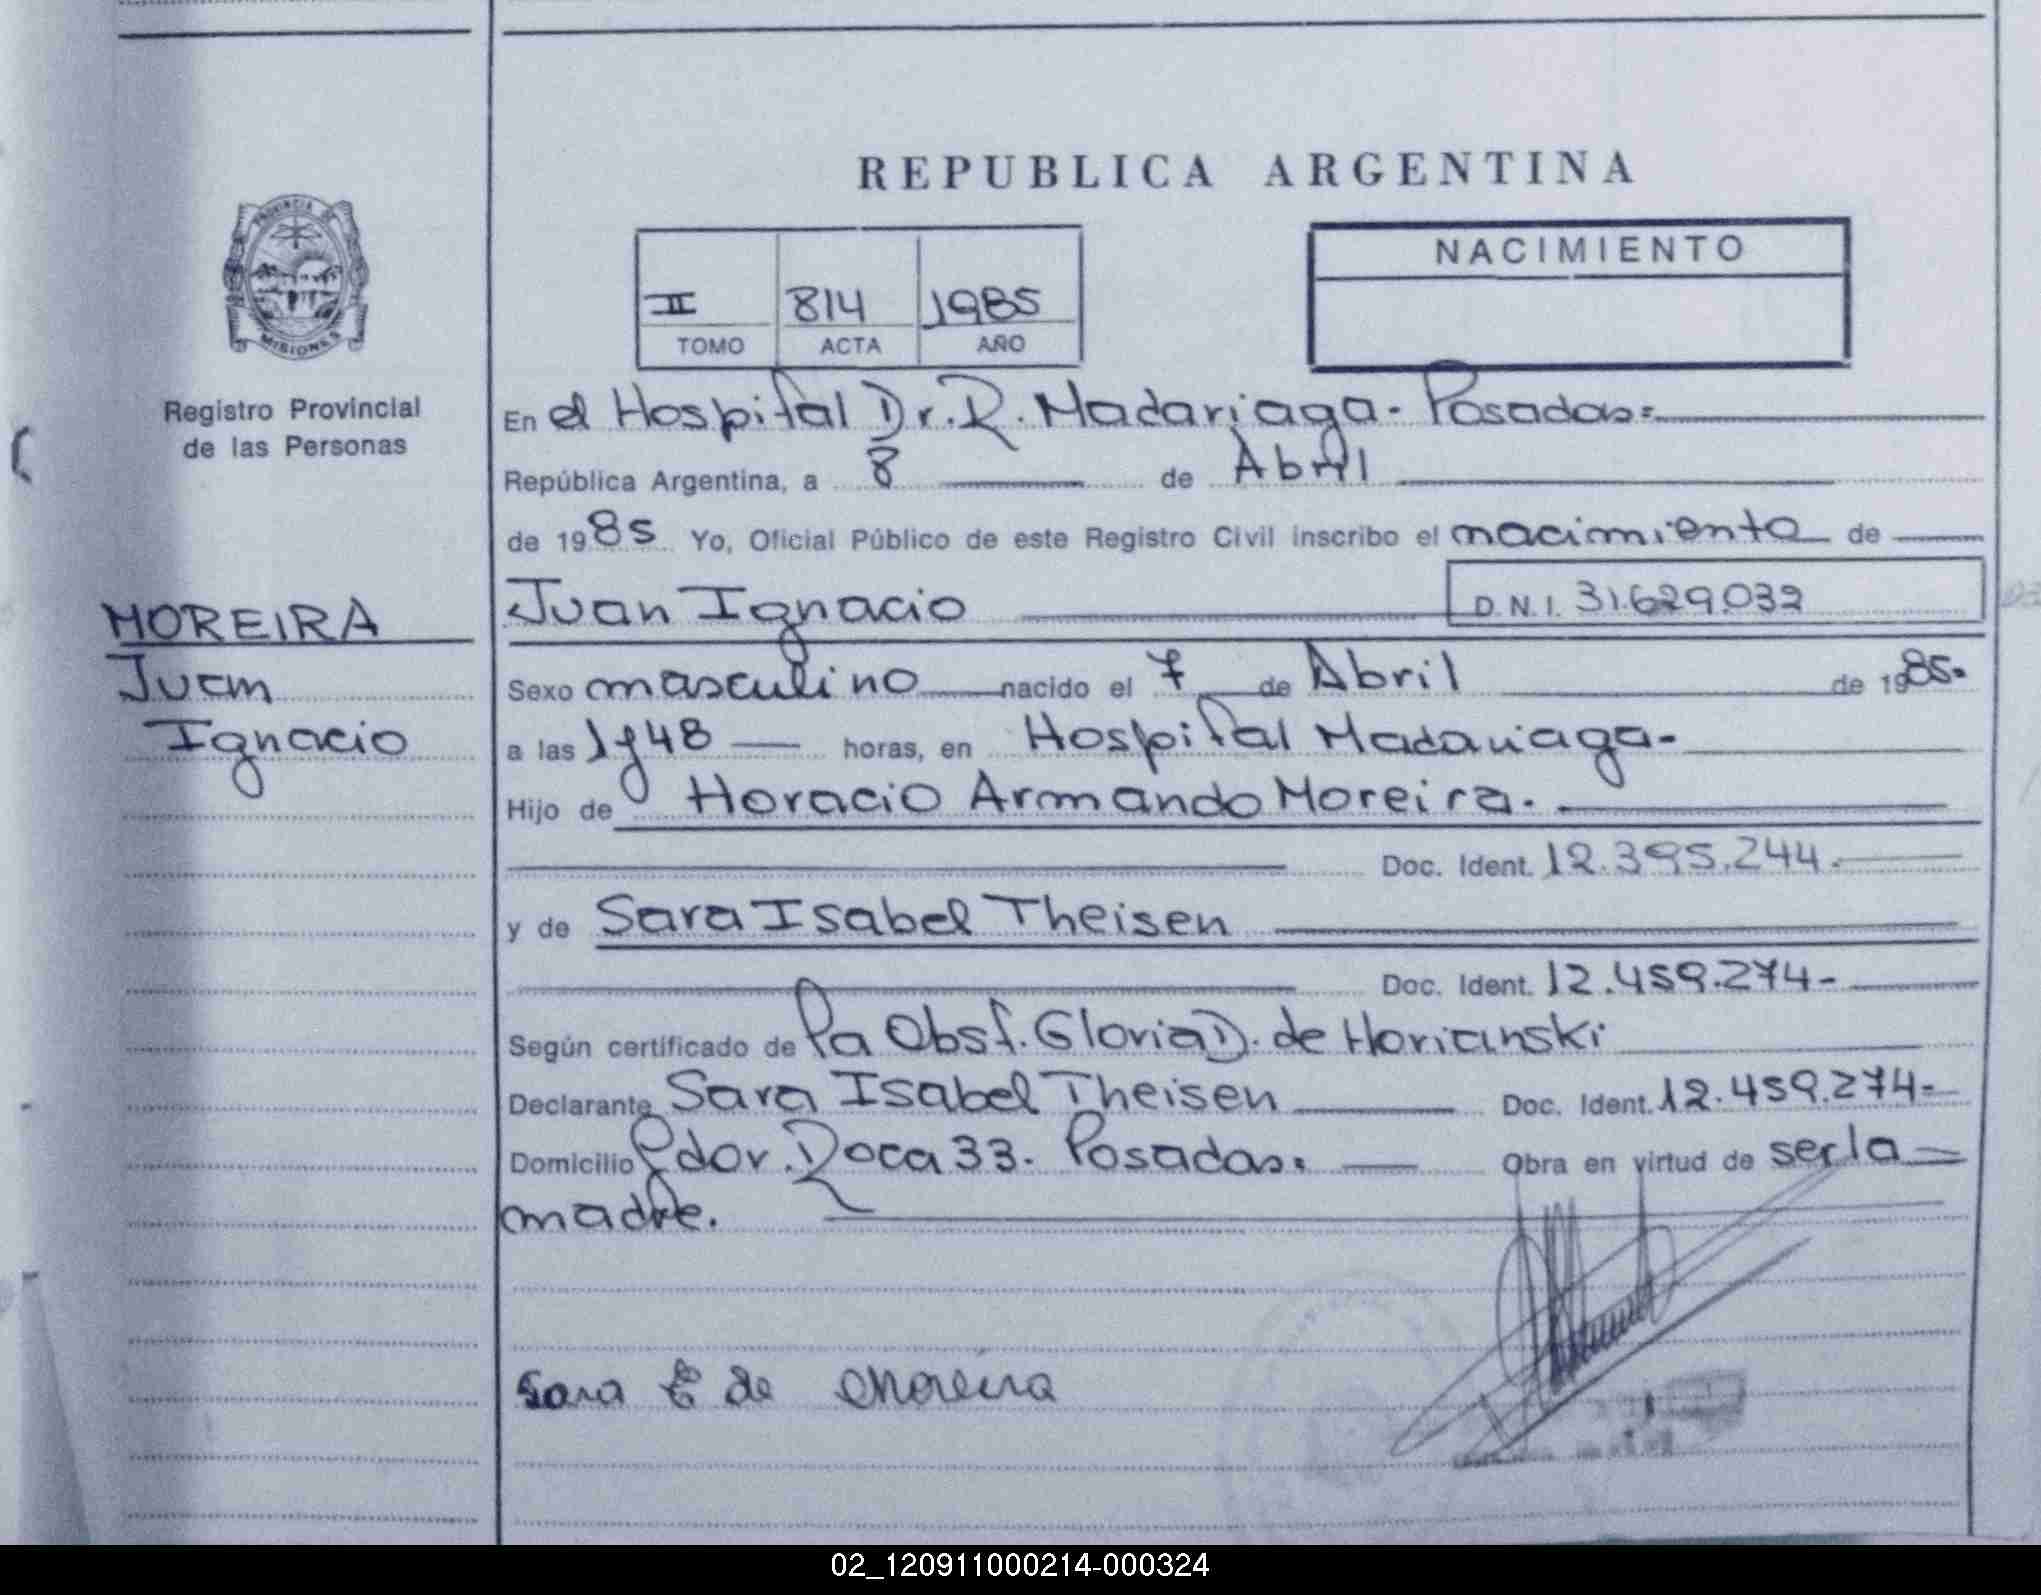 REPUBLICA ARGENTINA
PROVINCIA DE
MISIONES
Registro Provincial
de las Personas
II 814 1985
TOMO ACTA AÑO
NACIMIENTO
En el Hospital Dr. R. Madariaga - Posadas =
República Argentina, a 8 de Abril
de 1985 Yo, Oficial Público de este Registro Civil inscribo el nacimiento de
MOREIRA
Juan
Ignacio
Juan Ignacio D.N.I. 31.629.032
Sexo masculino nacido el 7 de Abril de 1985.
a las 1 y 48 horas, en Hospital Madariaga -
Hijo de Horacio Armando Moreira.
Doc. Ident. 12.395.244.
y de Sara Isabel Theisen
Doc. Ident. 12.459.274 -
Según certificado de la Obst. Gloria D. de Horianski
Declarante Sara Isabel Theisen Doc. Ident. 12.459.274 -
Domicilio Pdor. Roca 33 - Posadas = Obra en virtud de ser la =
madre.
Sara de Moreira
02_120911000214-000324